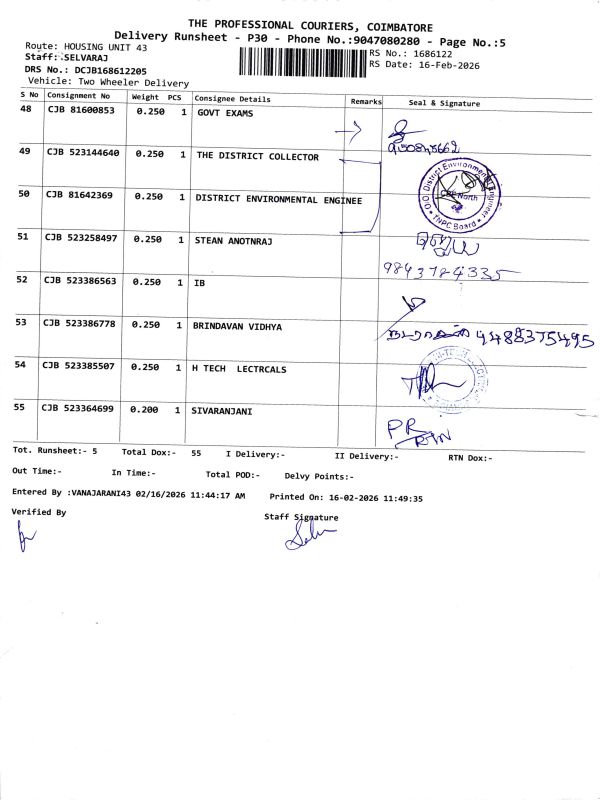 THE PROFESSIONAL COURIERS, COIMBATORE
Delivery Runsheet - P30 - Phone No.:9047080280 - Page No.:5
Route: HOUSING UNIT 43
RS No.: 1686122
Staff: SELVARAJ
RS Date: 16-Feb-2026
DRS No.: DCJB168612205
Vehicle: Two Wheeler Delivery
S No Consignment No Weight PCS Consignee Details Remarks Seal & Signature
48 CJB 81600853 0.250 1 GOVT EXAMS
49 CJB 523144640 0.250 1 THE DISTRICT COLLECTOR
50 CJB 81642369 0.250 1 DISTRICT ENVIRONMENTAL ENGINEE
O/O. District Environmental Engineer
CBE North
* TNPC Board *
51 CJB 523258497 0.250 1 STEAN ANOTNRAJ
9843784335
52 CJB 523386563 0.250 1 IB
53 CJB 523386778 0.250 1 BRINDAVAN VIDHYA
9488375495
54 CJB 523385507 0.250 1 H TECH LECTRCALS
55 CJB 523364699 0.200 1 SIVARANJANI
PR
RTN
Tot. Runsheet:- 5 Total Dox:- 55 I Delivery:- II Delivery:- RTN Dox:-
Out Time:- In Time:- Total POD:- Delvy Points:-
Entered By :VANAJARANI43 02/16/2026 11:44:17 AM Printed On: 16-02-2026 11:49:35
Verified By
Staff Signature